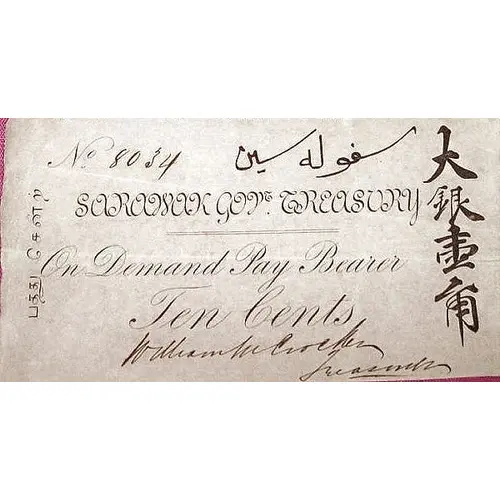 No 8034
سفوله سين
SARAWAK GOVT. TREASURY
On Demand Pay Bearer
Ten Cents
William M Crocker
Treasurer
大銀壹角
பத்து சென்று